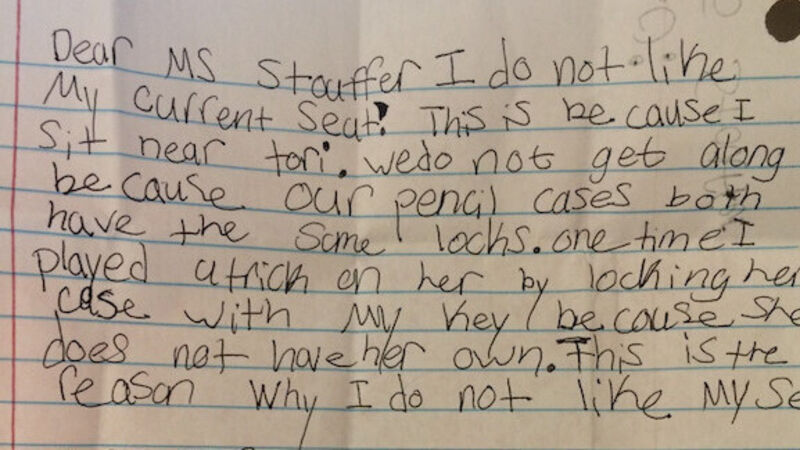 Dear MS Stouffer I do not like
My current Seat! This is because I
sit near tori. wedo not get along
because our pencil cases both
have the same locks. one time I
played a trick on her by locking her
case with My key because she
does not have her own. This is the
reason Why I do not like My se